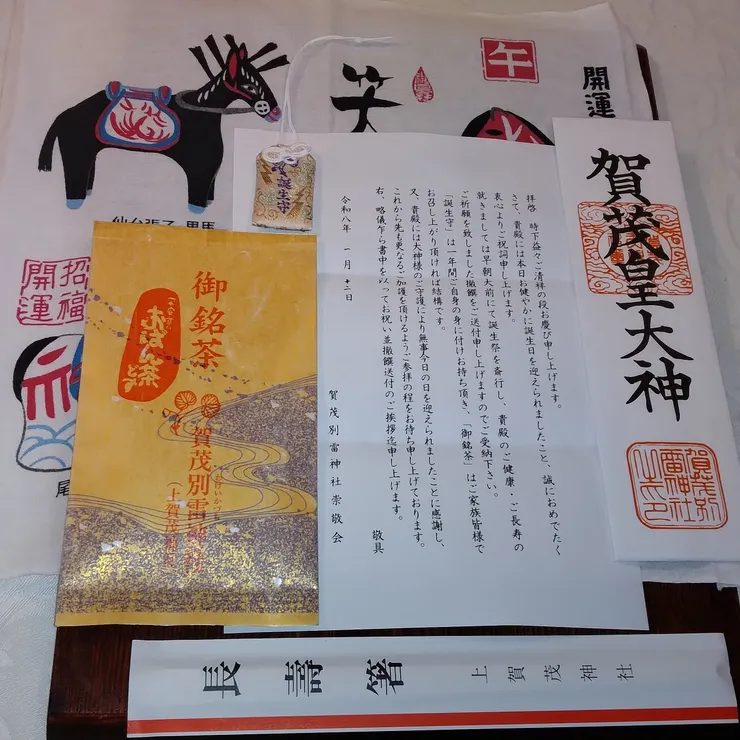 午
笑
開運
仙台張子 黒馬
招福
開運
尾
誕生守
御銘茶
賀茂別雷神社
(上賀茂神社)
拝啓 時下益々ご清祥の段お慶び申し上げます。
さて、貴殿には本日お健やかに誕生日を迎えられましたこと、誠におめでたく
衷心よりご祝詞申し上げます。
就きましては早朝大前にて誕生祭を斎行し、貴殿のご健康・ご長寿の
ご祈願を致しました撤饌をご送付申し上げますのでご受納下さい。
「誕生守」は一年間ご自身の身に付けお持ち頂き、「御銘茶」はご家族皆様で
お召し上がり頂ければ結構です。
又、貴殿には大神様のご守護により無事今日の日を迎えられましたことに感謝し、
これから先も更なるご加護を頂けるようご参拝の程をお待ち申し上げております。
右、略儀乍ら書中を以ってお祝い並撤饌送付のご挨拶迄申し上げます。
敬具
令和八年 一月 十二日
賀茂別雷神社崇敬会
賀茂皇大神
賀茂別
雷神社
長寿箸 上賀茂神社